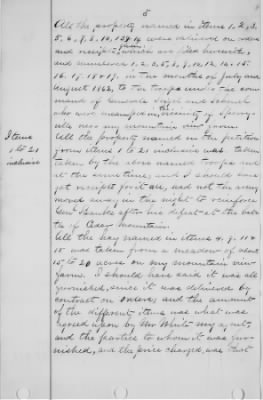 5
All the property named in items 1, 2, 3,
5, 6, 8, 10, 13 & 14 were delivered on orders
and receipts given which are filed herewith,
and numbered 1, 2, 3, 5, 8, 9, 10, 12, 14, 15
16, 17, 18 & 19, in the months of July and
August 1862, to the troops under the com
mand of Generals Sigel and Schenck
who were encamped in the vicinity of Sperry-
ville near my mountain view farm.
Items
1 to 21
inclusive
All the property named in the petition
from items 1 to 21 inclusive was taken
taken by the above named troops and
at the same time, and I should have
got receipts for it all, had not the army
moved away in the night to reinforce
Genl Banks after his defeat at the bat
tle of Cedar Mountain.
All the hay named in items 4, 9, 11 &
15 was taken from a meadow of about
15 to 20 acres on my mountain view
farm. I should have said it was all
furnished, since it was delivered by
contract on orders, and the amount
of the different items was what was
agreed upon by Mr White my agent,
and the parties to whom it was fur-
nished, and the price charged was that